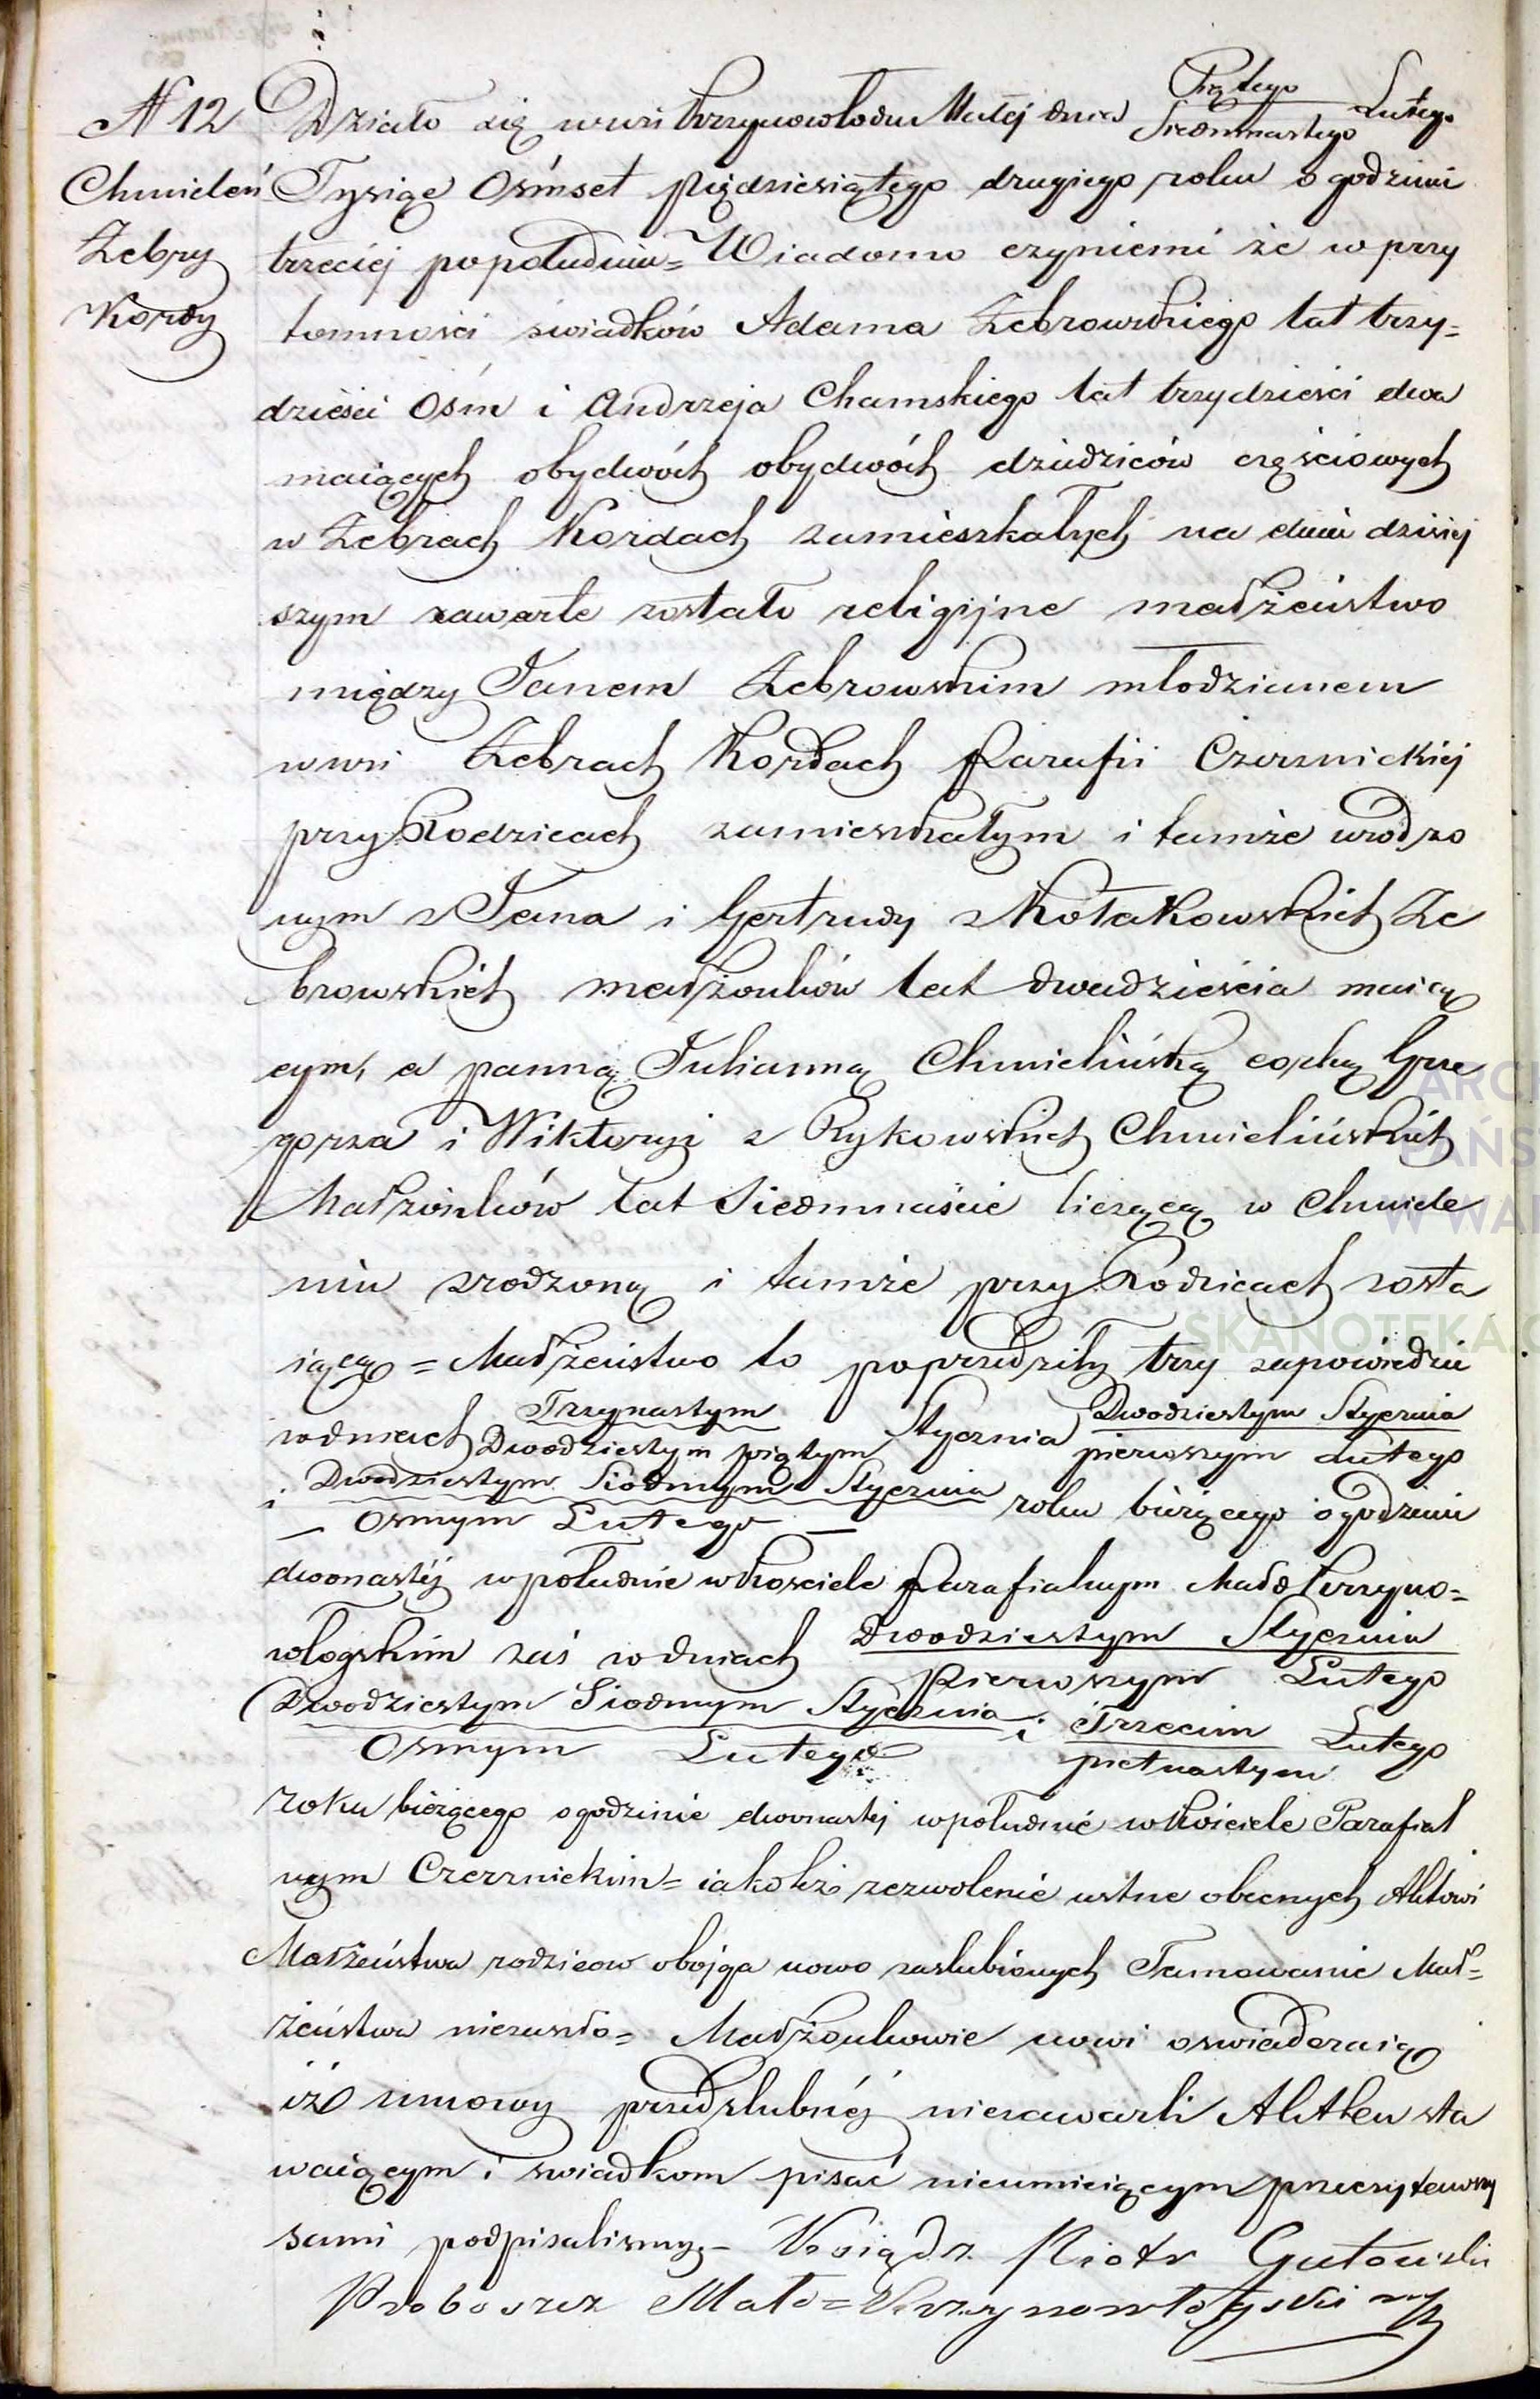 N 12
Chmieleń
Żebry
Kordy
Działo się wwsi Krzynowłodze Małej dnia Piątego / Siedmnastego Lutego
Tysiąc Ośmset piędziesiątego drugiego roku o godzinie
trzeciej popołudniu = Wiadomo czyniemi że w przy
tomności świadków Adama Żebrowskiego lat trzy=
dzieści Ośm i Andrzeja Chamskiego lat trzydzieści dwa
maiących obydwóch obydwóch dziedziców częściowych
w Żebrach Kordach zamieszkałych na dniu dzisiej
szym zawarte zostało religijne małżeństwo
między Janem Żebrowskim młodzianem
wwsi Żebrach Kordach Parafii Czernickiej
przy Rodzicach zamieszkałym i tamże urodzo
nym z Jana i Gertrudy z Kołakowskich Że
browskich małżonków lat dwadzieścia maią
cym, a panną Julianną Chmielińską corką Grze
gorza i Wiktoryi z Rykowskich Chmielińskich
Małżonków lat Siedmnaście liczącą w Chmiele
niu zrodzoną i tamże przy Rodzicach zosta
iącą = Małżeństwo to poprzedziły trzy zapowiedzie
wdniach Trzynastym / Dwodziestym piątym Stycznia Dwodziestym Stycznia / pierwszym Lutego
i Dwodziestym Siódmym Stycznia / Osmym Lutego roku bieżącego ogodzinie
dwonastéj wpołudnie wkosciele Parafialnym Mało Krzyno=
włogskim zaś wdniach Dwodziestym Stycznia / Pierwszym Lutego
Dwodziestym Siodmym Stycznia / Osmym Lutego i Trzecim / pietnastym Lutego
roku bieżącego ogodzinie dwonastej wpołudnie wkościele Parafial
nym Czernickim = iakoliż zezwolenie ustne obecnych Aktowi
Małżeństwa rodzicow obojga nowo zaslubionych Tamowanie Mał=
żeństwa niezaszło = Małżonkowie nowi oswiadczaią
iż umowy przedslubnéj niezawarli Akt ten sta
waiącym i swiadkom pisać nieumieiącym przeczytawszy
sami podpisalismy – Xsiądz Piotr Gutowski
Proboszcz Mało = Krzynowłogski mp
ARCH
PAŃS
W WA
SKANOTEKA.G